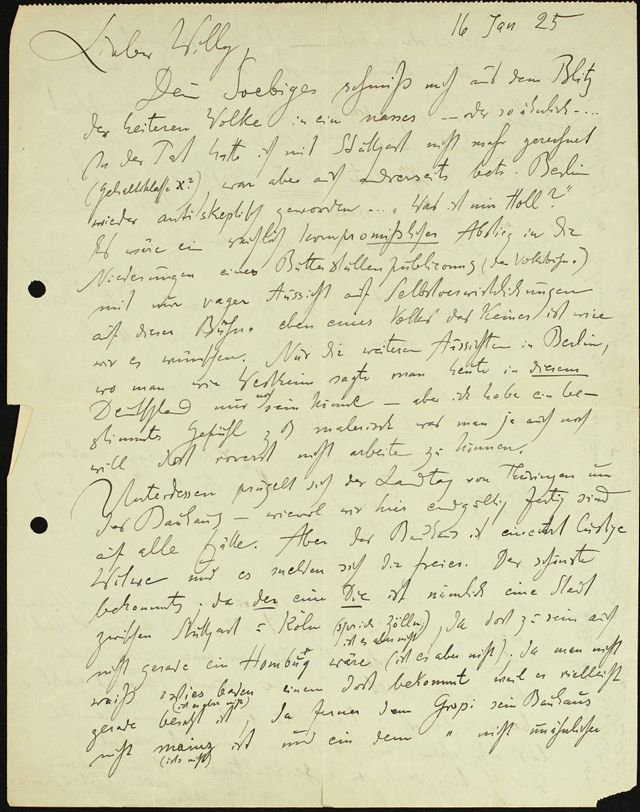 16 Jan 25
Lieber Willy,
Dein Soebiges schmiß mich aus dem Blitz
der heiteren Wolke in ein nasses — oder so ähnlich — ...
In der Tat hatte ich mit Stuttgart nicht mehr gerechnet
(Gehaltsklasse X?), war aber auch andrerseits betr. Berlin
wieder antiskeptisch geworden ... „Was ist nun Holl?"
Es wäre ein reichlich kompromißlicher Abstieg in die
Niederungen eines (der Volksbühne)
mit nur vager Aussicht auf Selbstverwirklichungen
auf dieser Bühne eben eines Volkes das keines ist wie
wir es wünschen. Nur die weiteren Aussichten in Berlin,
wo man wie Westheim sagte man heute in diesem
Deutschland nur noch sein könne — aber ich habe ein be-
stimmtes Gefühl daß malerisch was man ja auch noch
will dort vorerst nicht arbeiten zu können.
Unterdessen prügelt sich der Landtag von Thüringen um
das Bauhaus — wiewohl wir hier endgültig fertig sind
auf alle Fälle. Aber das Bauhaus ist eine lustige
Witwe und es melden sich die Freier. Der schönste
bekommts; da der eine Die ist nämlich eine Stadt
zwischen Stuttgart = Köln (sprich: Zölln), da dort zu sein auch
(ist es aber nicht)
nicht gerade ein Homburg wäre (ist es aber nicht), da man nicht
weiß baden einem dort bekommt weil es vielleicht
(ist es aber nicht)
gerade besetzt ist, da ferner dem Gropi sein Bauhaus
nicht mainz ist und ein dem " nicht unähnlicher
(ists nicht)